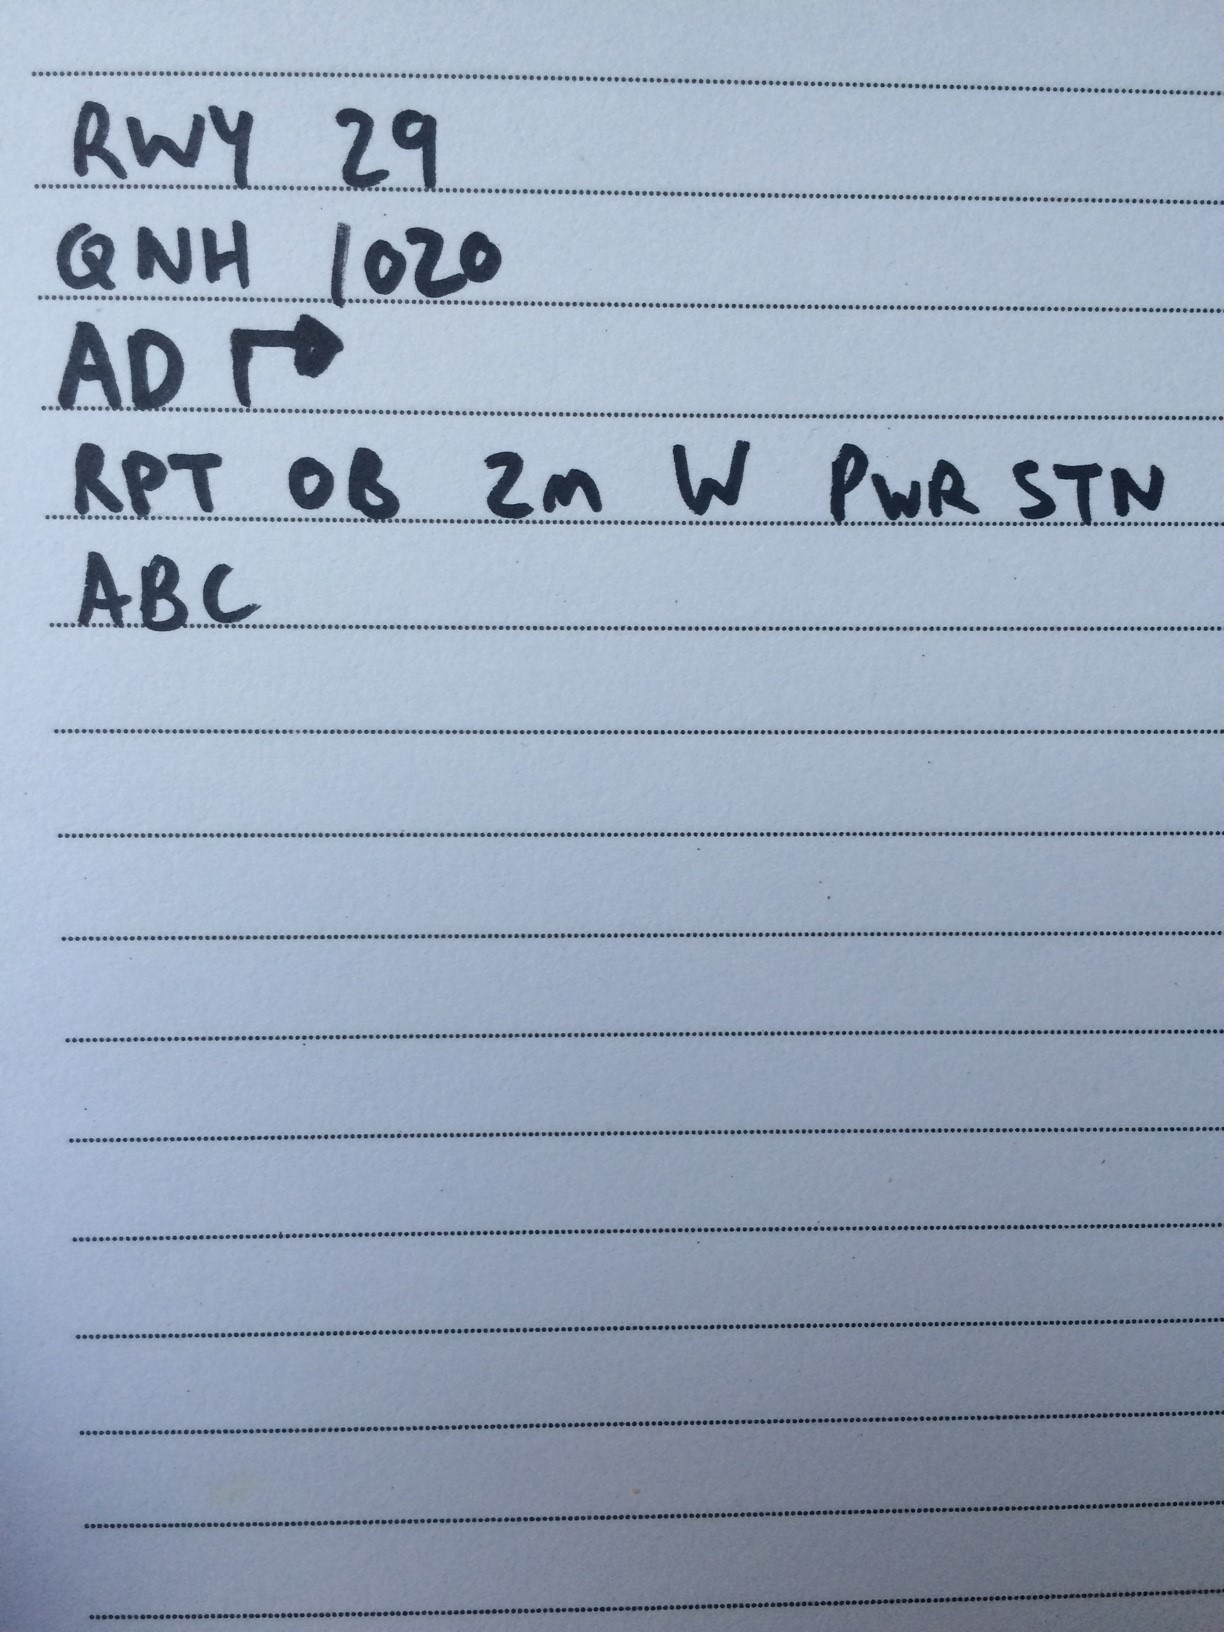 RWY 29
QNH 1020
AD ↱
RPT OB 2m W PWR STN
ABC